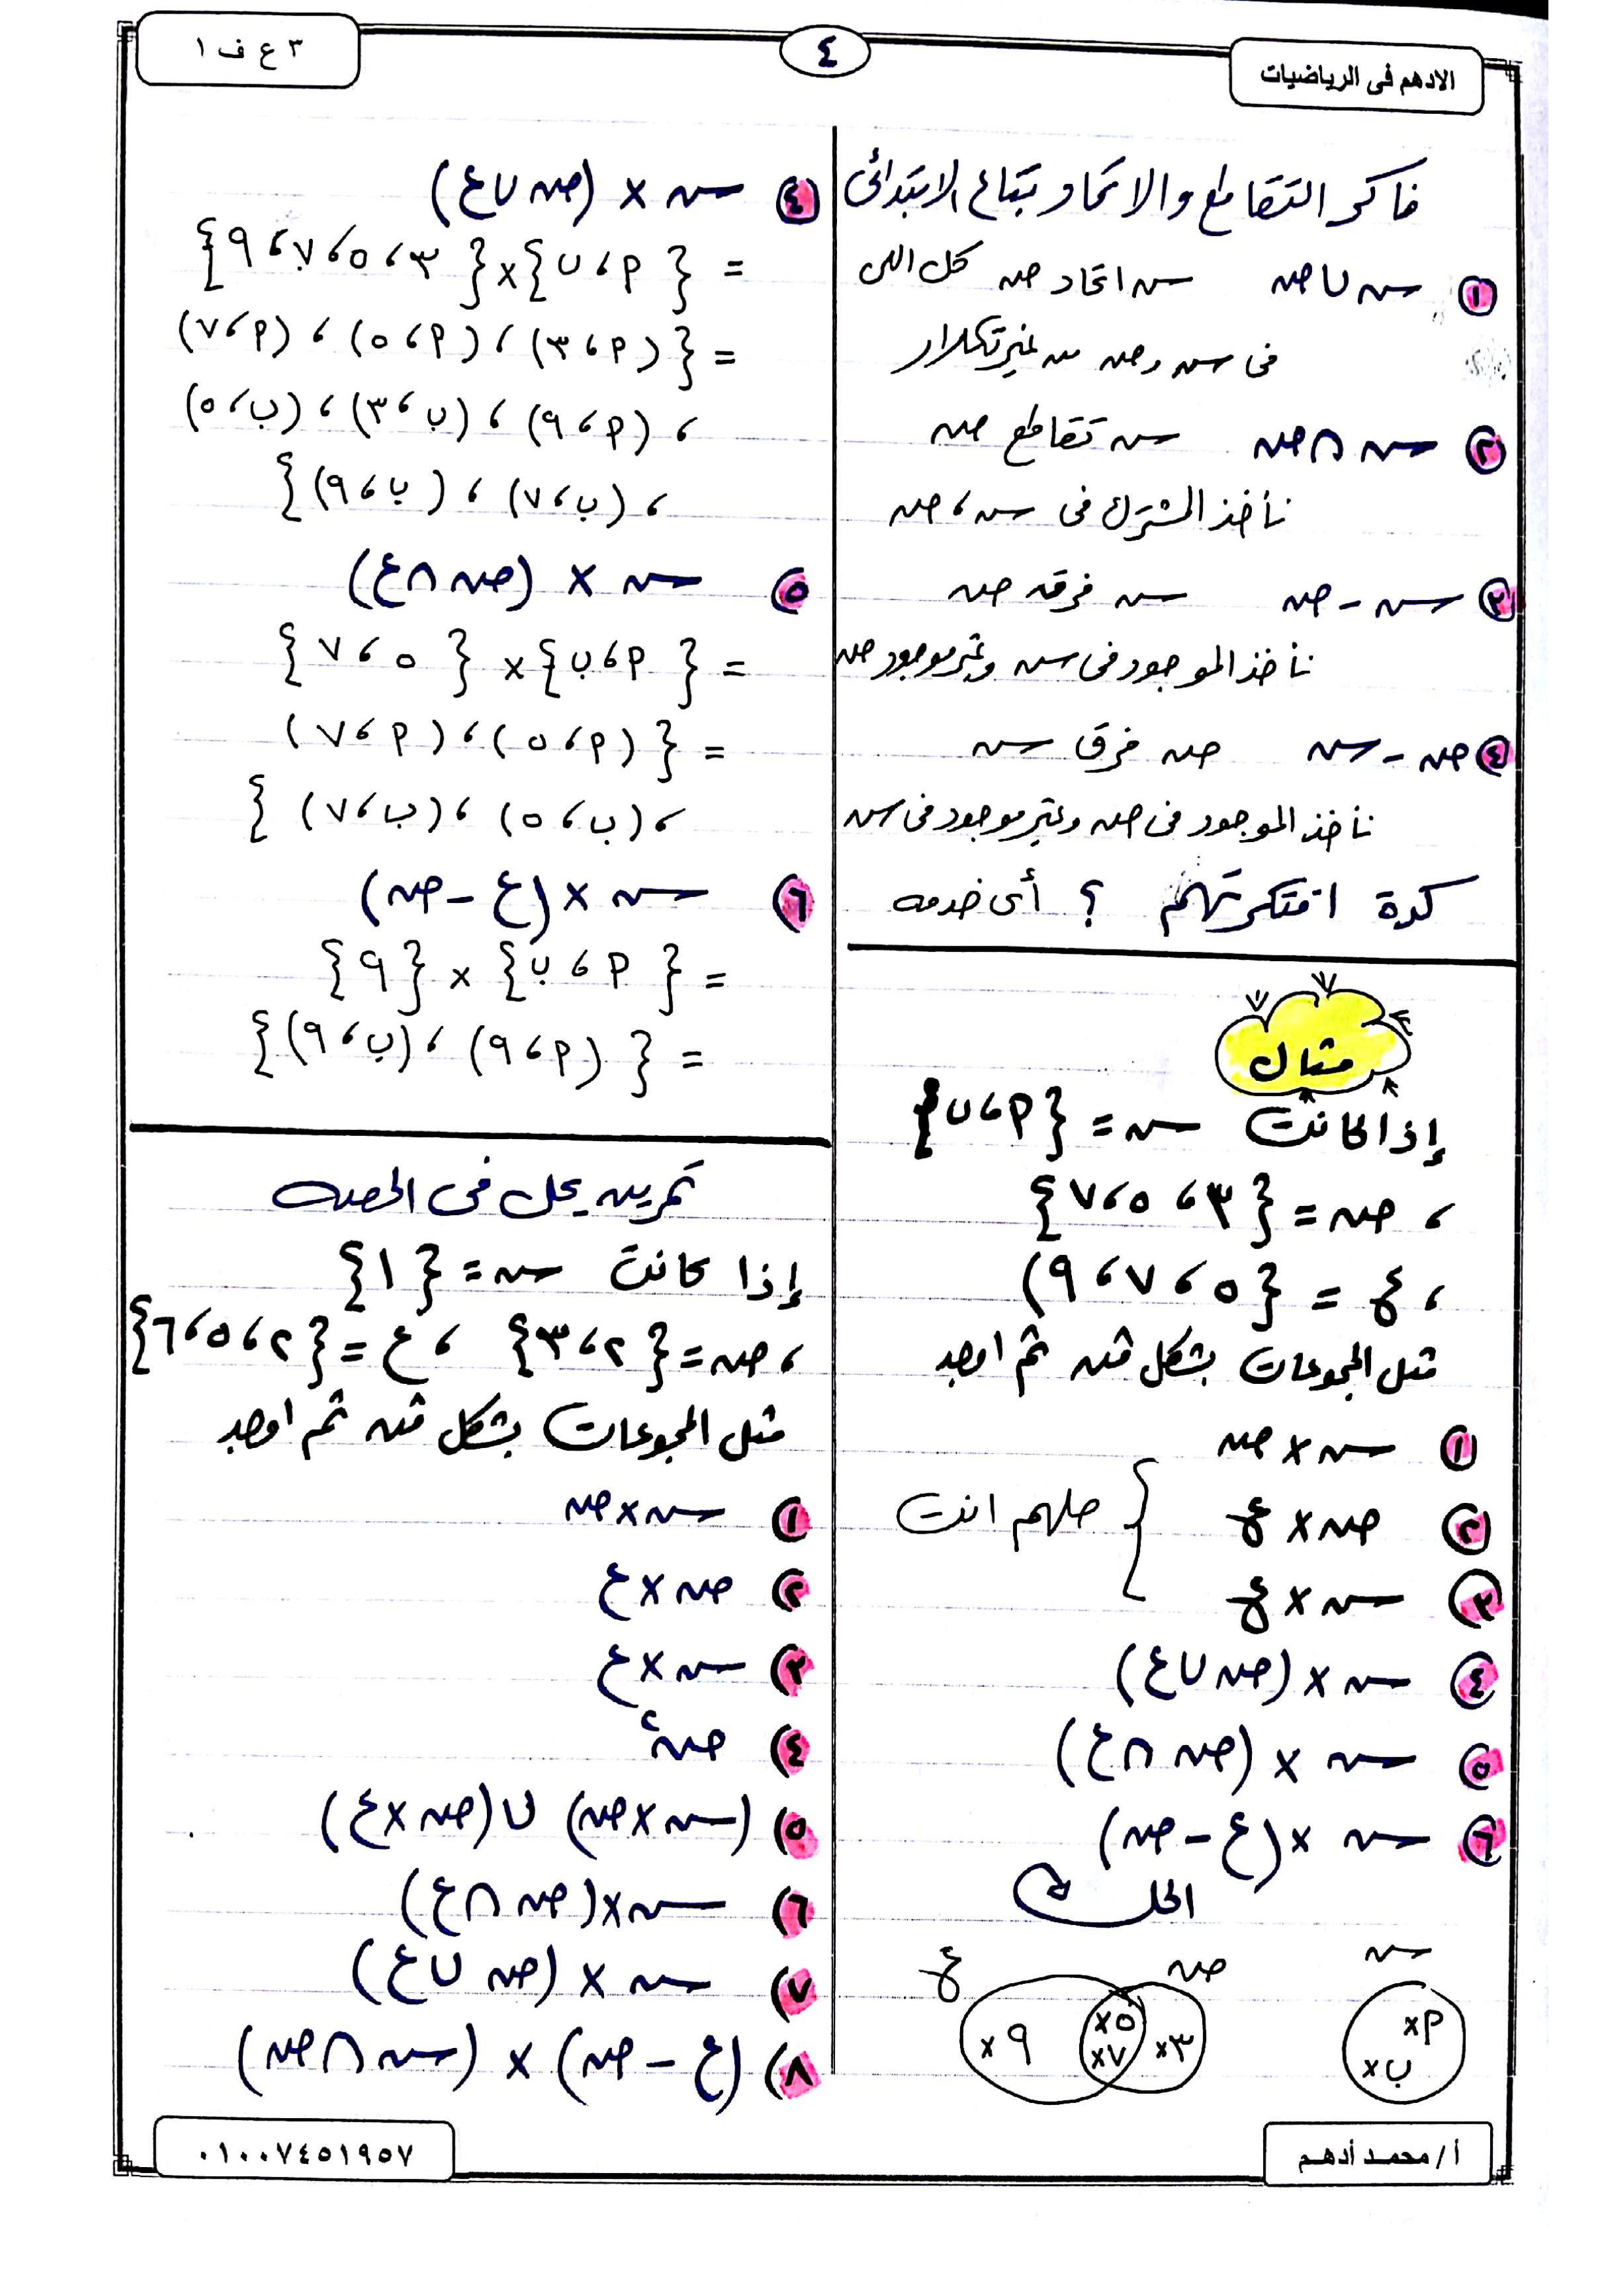 الادهم فى الرياضيات
٤
٣ ع ف ١
فاكر التقاطع والاتحاد بتاع الابتدائى
١ س ∪ ص س اتحاد ص كل اللى
فى س وص من غير تكرار
٢ س ∩ ص س تقاطع ص
نأخذ المشترك فى س ، ص
٣ س - ص س فرق ص
نأخذ الموجود فى س وغير موجود ص
٤ ص - س ص فرق س
نأخذ الموجود فى ص وغير موجود فى س
كدة افتكرتهم ؟ أى خدمه
مثال
إذا كانت س = {٩ ، ب}
، ص = {٣ ، ٥ ، ٧}
، ع = {٥ ، ٧ ، ٩)
مثل المجموعات بشكل ڤن ثم اوجد
١ س × ص
٢ ص × ع
٣ س × ع
حلهم انت
٤ س × (ص ∪ ع)
٥ س × (ص ∩ ع)
٦ س × (ع - ص)
الحل
س ص ع
×٩ ×ب
×٣ ×٥ ×٧ ×٩
٤ س × (ص ∪ ع)
= {٩ ، ب} × {٣ ، ٥ ، ٧ ، ٩}
= {(٩ ، ٣) ، (٩ ، ٥) ، (٩ ، ٧)
، (٩ ، ٩) ، (ب ، ٣) ، (ب ، ٥)
، (ب ، ٧) ، (ب ، ٩)}
٥ س × (ص ∩ ع)
= {٩ ، ب} × {٥ ، ٧}
= {(٩ ، ٥) ، (٩ ، ٧)
، (ب ، ٥) ، (ب ، ٧)}
٦ س × (ع - ص)
= {٩ ، ب} × {٩}
= {(٩ ، ٩) ، (ب ، ٩)}
تمرين يحل فى الحصه
إذا كانت س = {١}
، ص = {٢ ، ٣} ، ع = {٢ ، ٥ ، ٦}
مثل المجموعات بشكل ڤن ثم اوجد
١ س × ص
٢ ص × ع
٣ س × ع
٤ ص٢
٥ (س × ص) ∪ (ص × ع)
٦ س × (ص ∩ ع)
٧ س × (ص ∪ ع)
٨ (ع - ص) × (س ∩ ص)
أ / محمد أدهم
٠١٠٠٧٤٥١٩٥٧